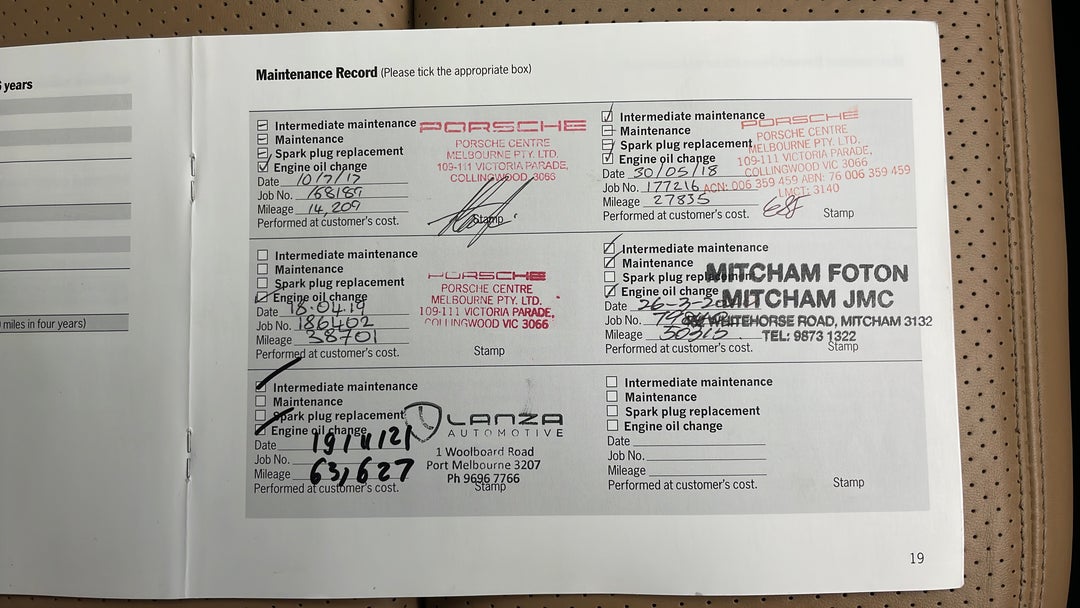 6 years
miles in four years)
Maintenance Record (Please tick the appropriate box)
Intermediate maintenance
Maintenance
Spark plug replacement
Engine oil change
Date 10/7/17
Job No. 168189
Mileage 14,209
Performed at customer's cost.
Stamp
PORSCHE
PORSCHE CENTRE
MELBOURNE PTY. LTD.
109-111 VICTORIA PARADE,
COLLINGWOOD 3066
Intermediate maintenance
Maintenance
Spark plug replacement
Engine oil change
Date 30/05/18
Job No. 177216
Mileage 27835
Performed at customer's cost.
Stamp
PORSCHE
PORSCHE CENTRE
MELBOURNE PTY. LTD.
109-111 VICTORIA PARADE,
COLLINGWOOD VIC 3066
ACN: 006 359 459 ABN: 76 006 359 459
LMCT: 3140
Intermediate maintenance
Maintenance
Spark plug replacement
Engine oil change
Date 18.04.19
Job No. 186402
Mileage 38701
Performed at customer's cost.
Stamp
PORSCHE
PORSCHE CENTRE
MELBOURNE PTY. LTD.
109-111 VICTORIA PARADE,
COLLINGWOOD VIC 3066
Intermediate maintenance
Maintenance
Spark plug replacement
Engine oil change
Date 26-3-20
Job No.
Mileage 50315
Performed at customer's cost.
Stamp
MITCHAM FOTON
MITCHAM JMC
WHITEHORSE ROAD, MITCHAM 3132
TEL: 9873 1322
Intermediate maintenance
Maintenance
Spark plug replacement
Engine oil change
Date 19/4/21
Job No.
Mileage 63,627
Performed at customer's cost.
Stamp
LANZA
AUTOMOTIVE
1 Woolboard Road
Port Melbourne 3207
Ph 9696 7766
Intermediate maintenance
Maintenance
Spark plug replacement
Engine oil change
Date
Job No.
Mileage
Performed at customer's cost.
Stamp
19